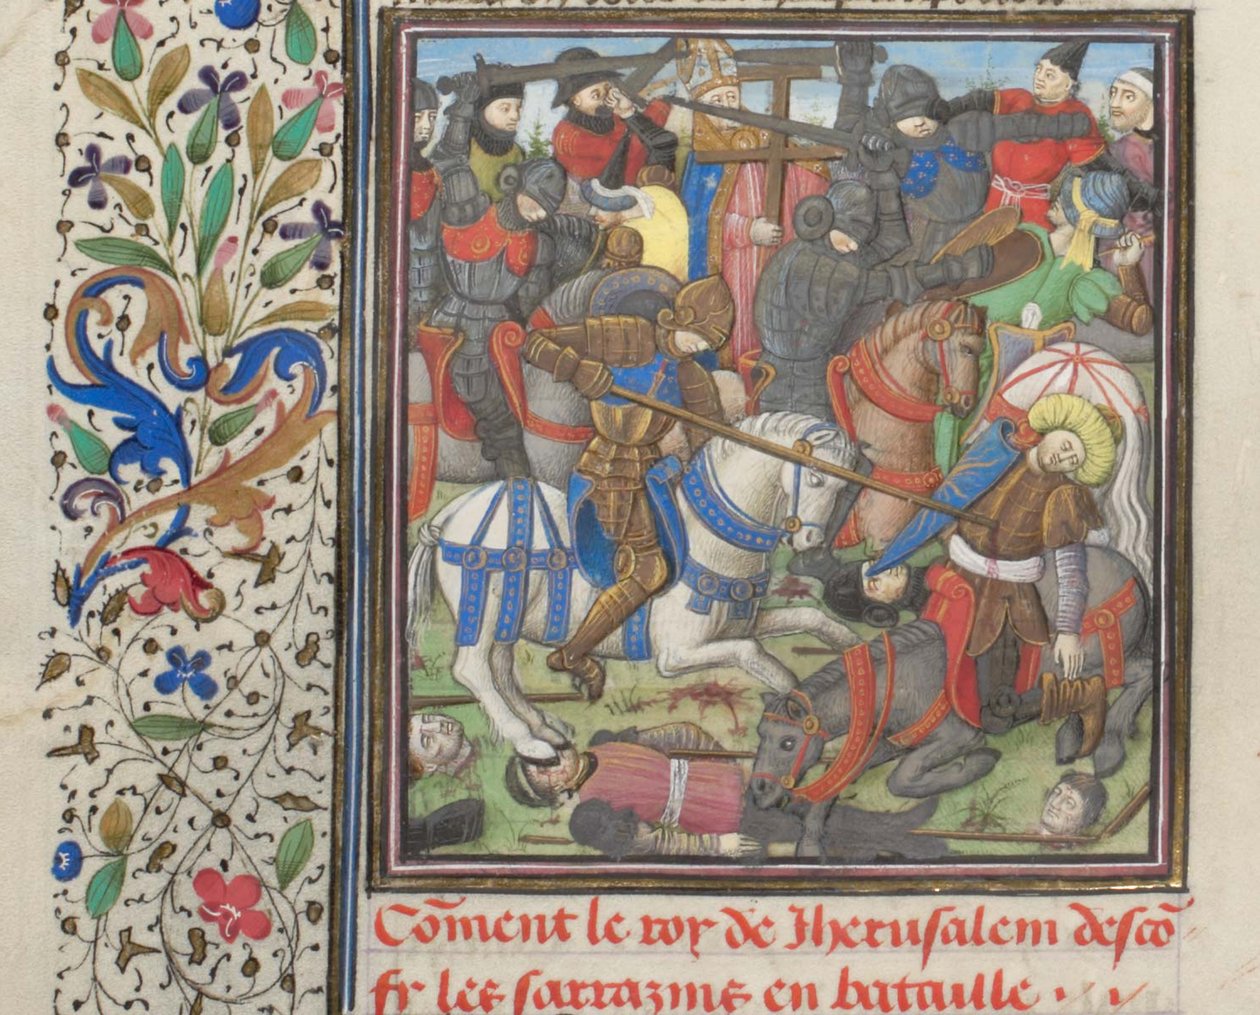 Cõment le roy de Jherusalem descõ
fr les sarrazins en bataille .